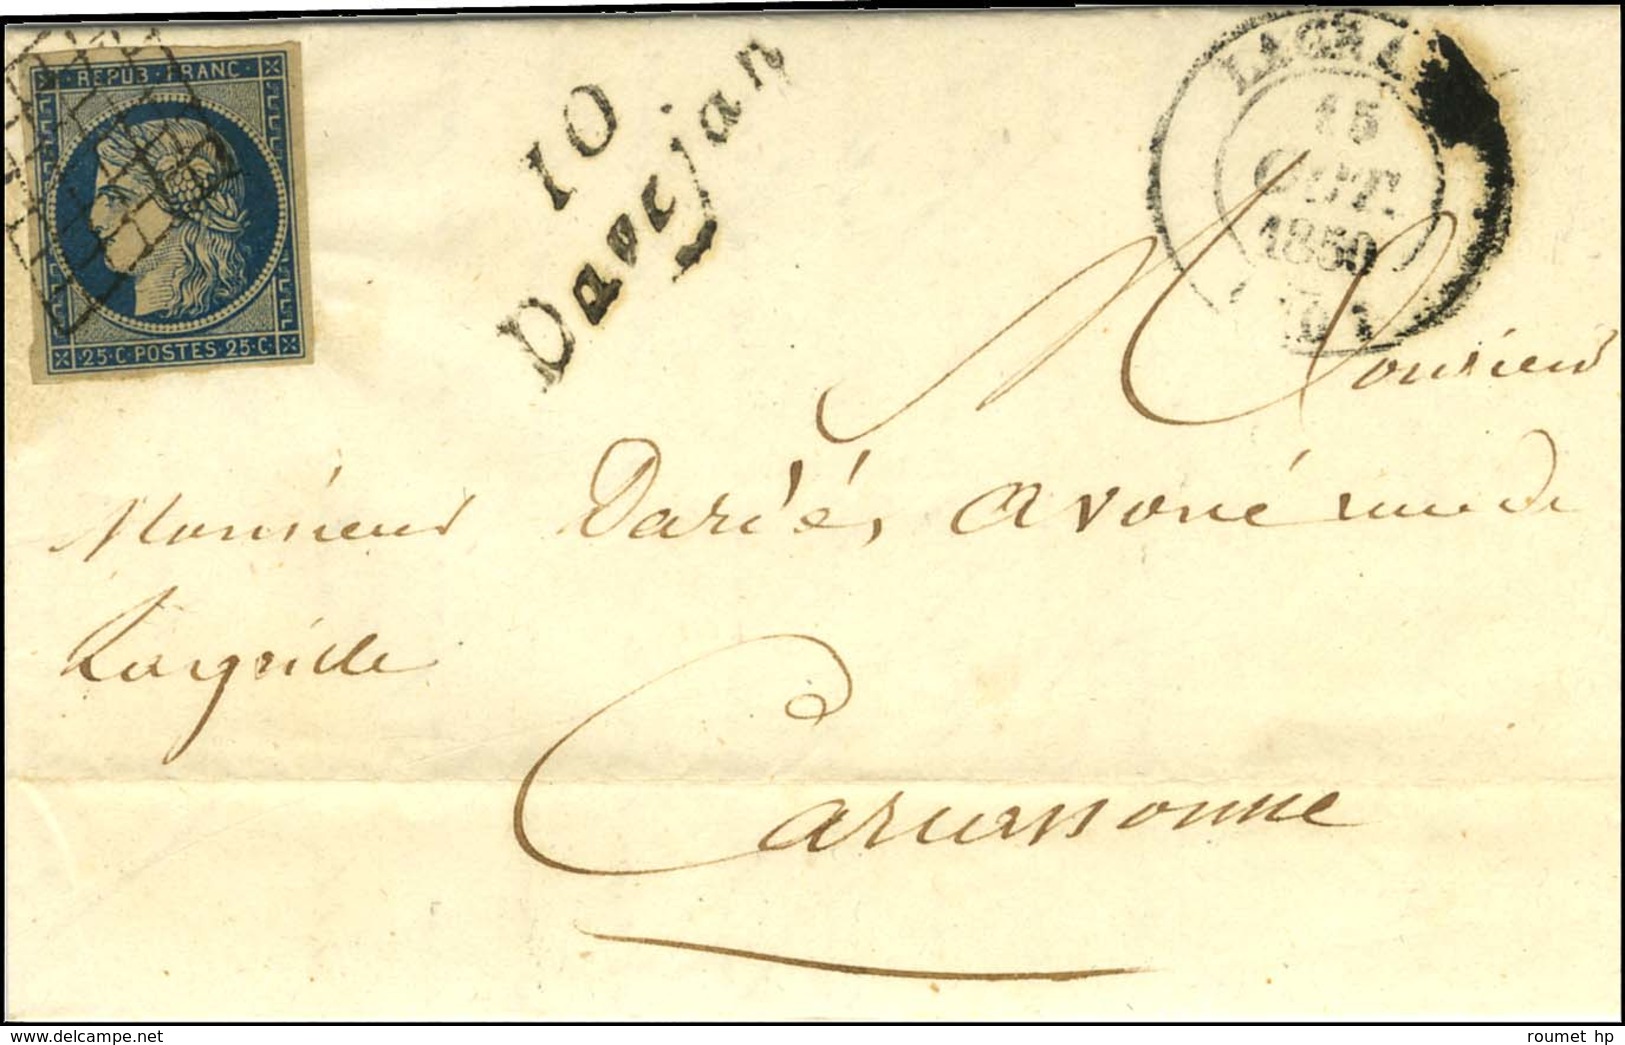 REPUB·FRANC·
25·C·POSTES·25·C·
10
Davejan
15
OCT.
1850
Monsieur
Monsieur Dariés, Avoué rue de
Lagrille
Carcassonne
roumet hp